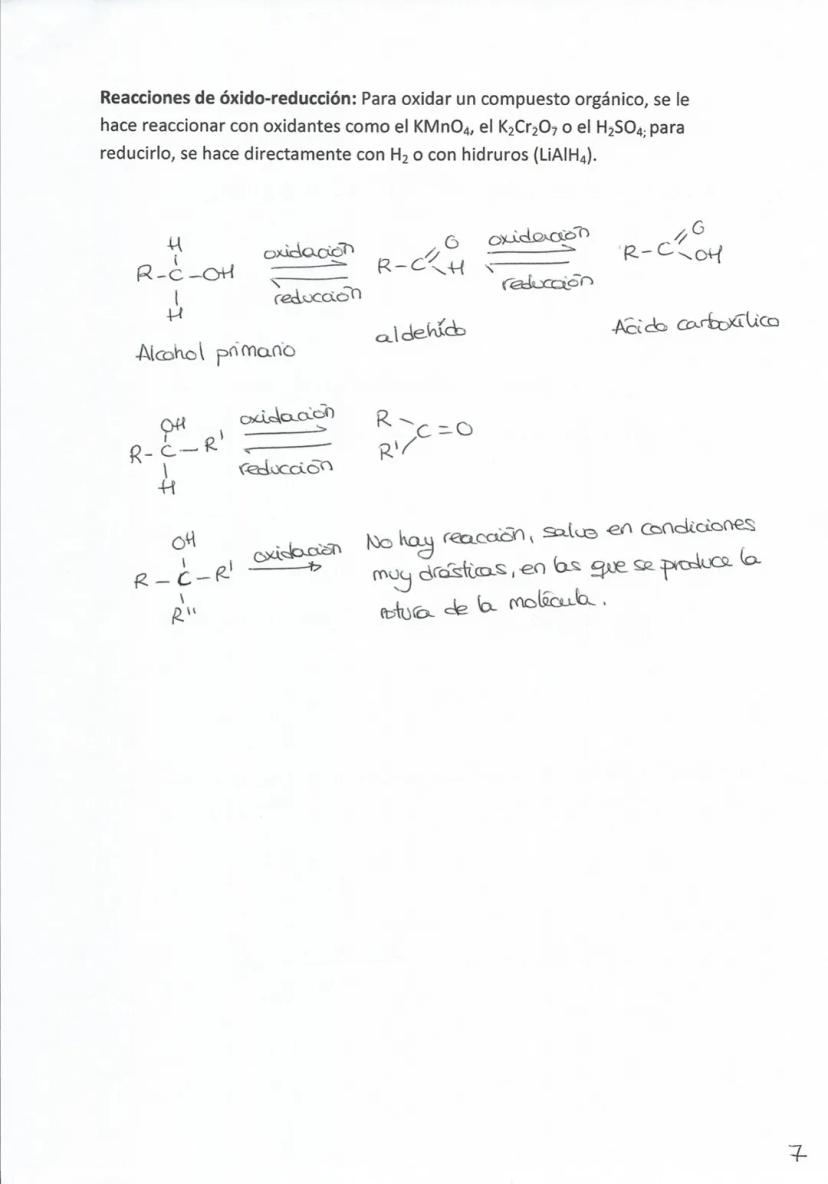 Reacciones de óxido-reducción: Para oxidar un compuesto orgánico, se le
hace reaccionar con oxidantes como el KMnO₄, el K₂Cr₂O₇ o el H₂SO₄; para
reducirlo, se hace directamente con H₂ o con hidruros (LiAlH₄).
H
R-C-OH
H
oxidación
reducción
R-C=O
H
oxidación
reducción
R-C=O
OH
Alcohol primario
aldehído
Ácido carboxílico
OH
R-C-R'
H
oxidación
reducción
R
R'
C=O
OH
R-C-R'
R''
oxidación
No hay reacción, salvo en condiciones
muy drásticas, en las que se produce la
rotura de la molécula.
7